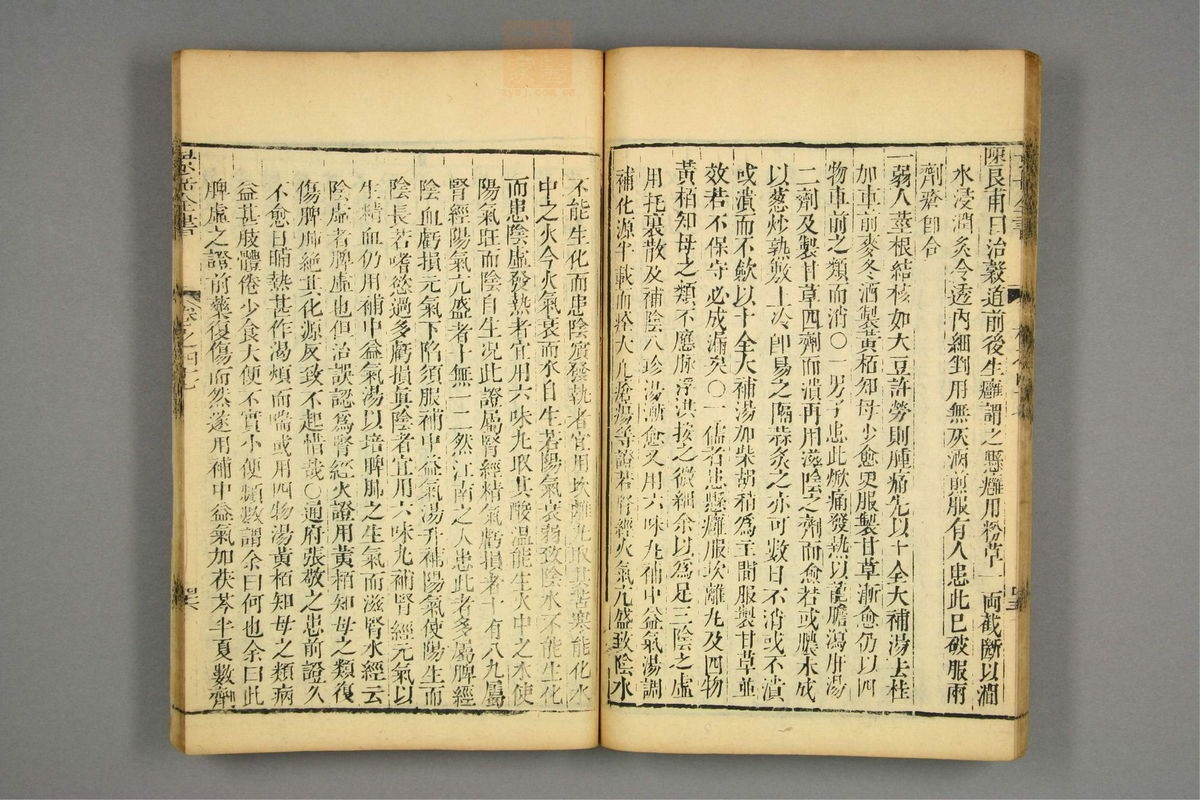 陳良甫曰治穀道前後生癰謂之懸癰用粉草一兩截斷以澗
水浸潤炙令透內細剉用無灰酒煎服有人患此已破服兩
劑瘡卽合
一弱人莖根結核如大豆許勞則腫痛先以十全大補湯去桂
加車前麥冬酒製黃栢知母少愈更服製甘草漸愈仍以四
物車前之類而消〇一男子患此焮痛發熱以龍膽瀉肝湯
二劑及製甘草四劑而潰再用滋陰之劑而愈若或膿未成
以葱炒熟敷上冷卽易之隔蒜灸之亦可數日不消或不潰
或潰而不歛以十全大補湯加柴胡稍爲主間服製甘草並
效若不保守必成漏矣〇一儒者患懸癰服坎離丸及四物
黃栢知母之類不應脉浮洪按之微細余以爲足三陰之虛
用托裏散及補陰八珍湯漸愈又用六味丸補中益氣湯調
補化源半載而痊大凡瘡瘍等證若腎經火氣亢盛致陰水
不能生化而患陰虛發熱者宜用坎離丸取其苦寒能化水
中之火令火氣衰而水自生若陽氣衰弱致陰水不能生化
而患陰虛發熱者宜用六味丸取其酸温能生火中之水使
陽氣旺而陰自生况此證屬腎經精氣虧損者十有八九屬
腎經陽氣亢盛者十無一二然江南之人患此者多屬脾經
陰血虧損元氣下陷須服補中益氣湯升補陽氣使陽生而
陰長若嗜慾過多虧損眞陰者宜用六味丸補腎經元氣以
生精血仍用補中益氣湯以培脾肺之生氣而滋腎水經云
陰虛者脾虛也但治誤認爲腎經火證用黃栢知母之類復
傷脾肺絶其化源反致不起惜哉〇通府張敬之患前證久
不愈日晡熱甚作渴煩而喘或用四物湯黃栢知母之類病
益甚肢體倦少食大便不實小便頻數謂余曰何也余曰此
脾虛之證前藥復傷而然遂用補中益氣加茯苓半夏數劑
景岳全書
卷之四七
zysj.com.cn